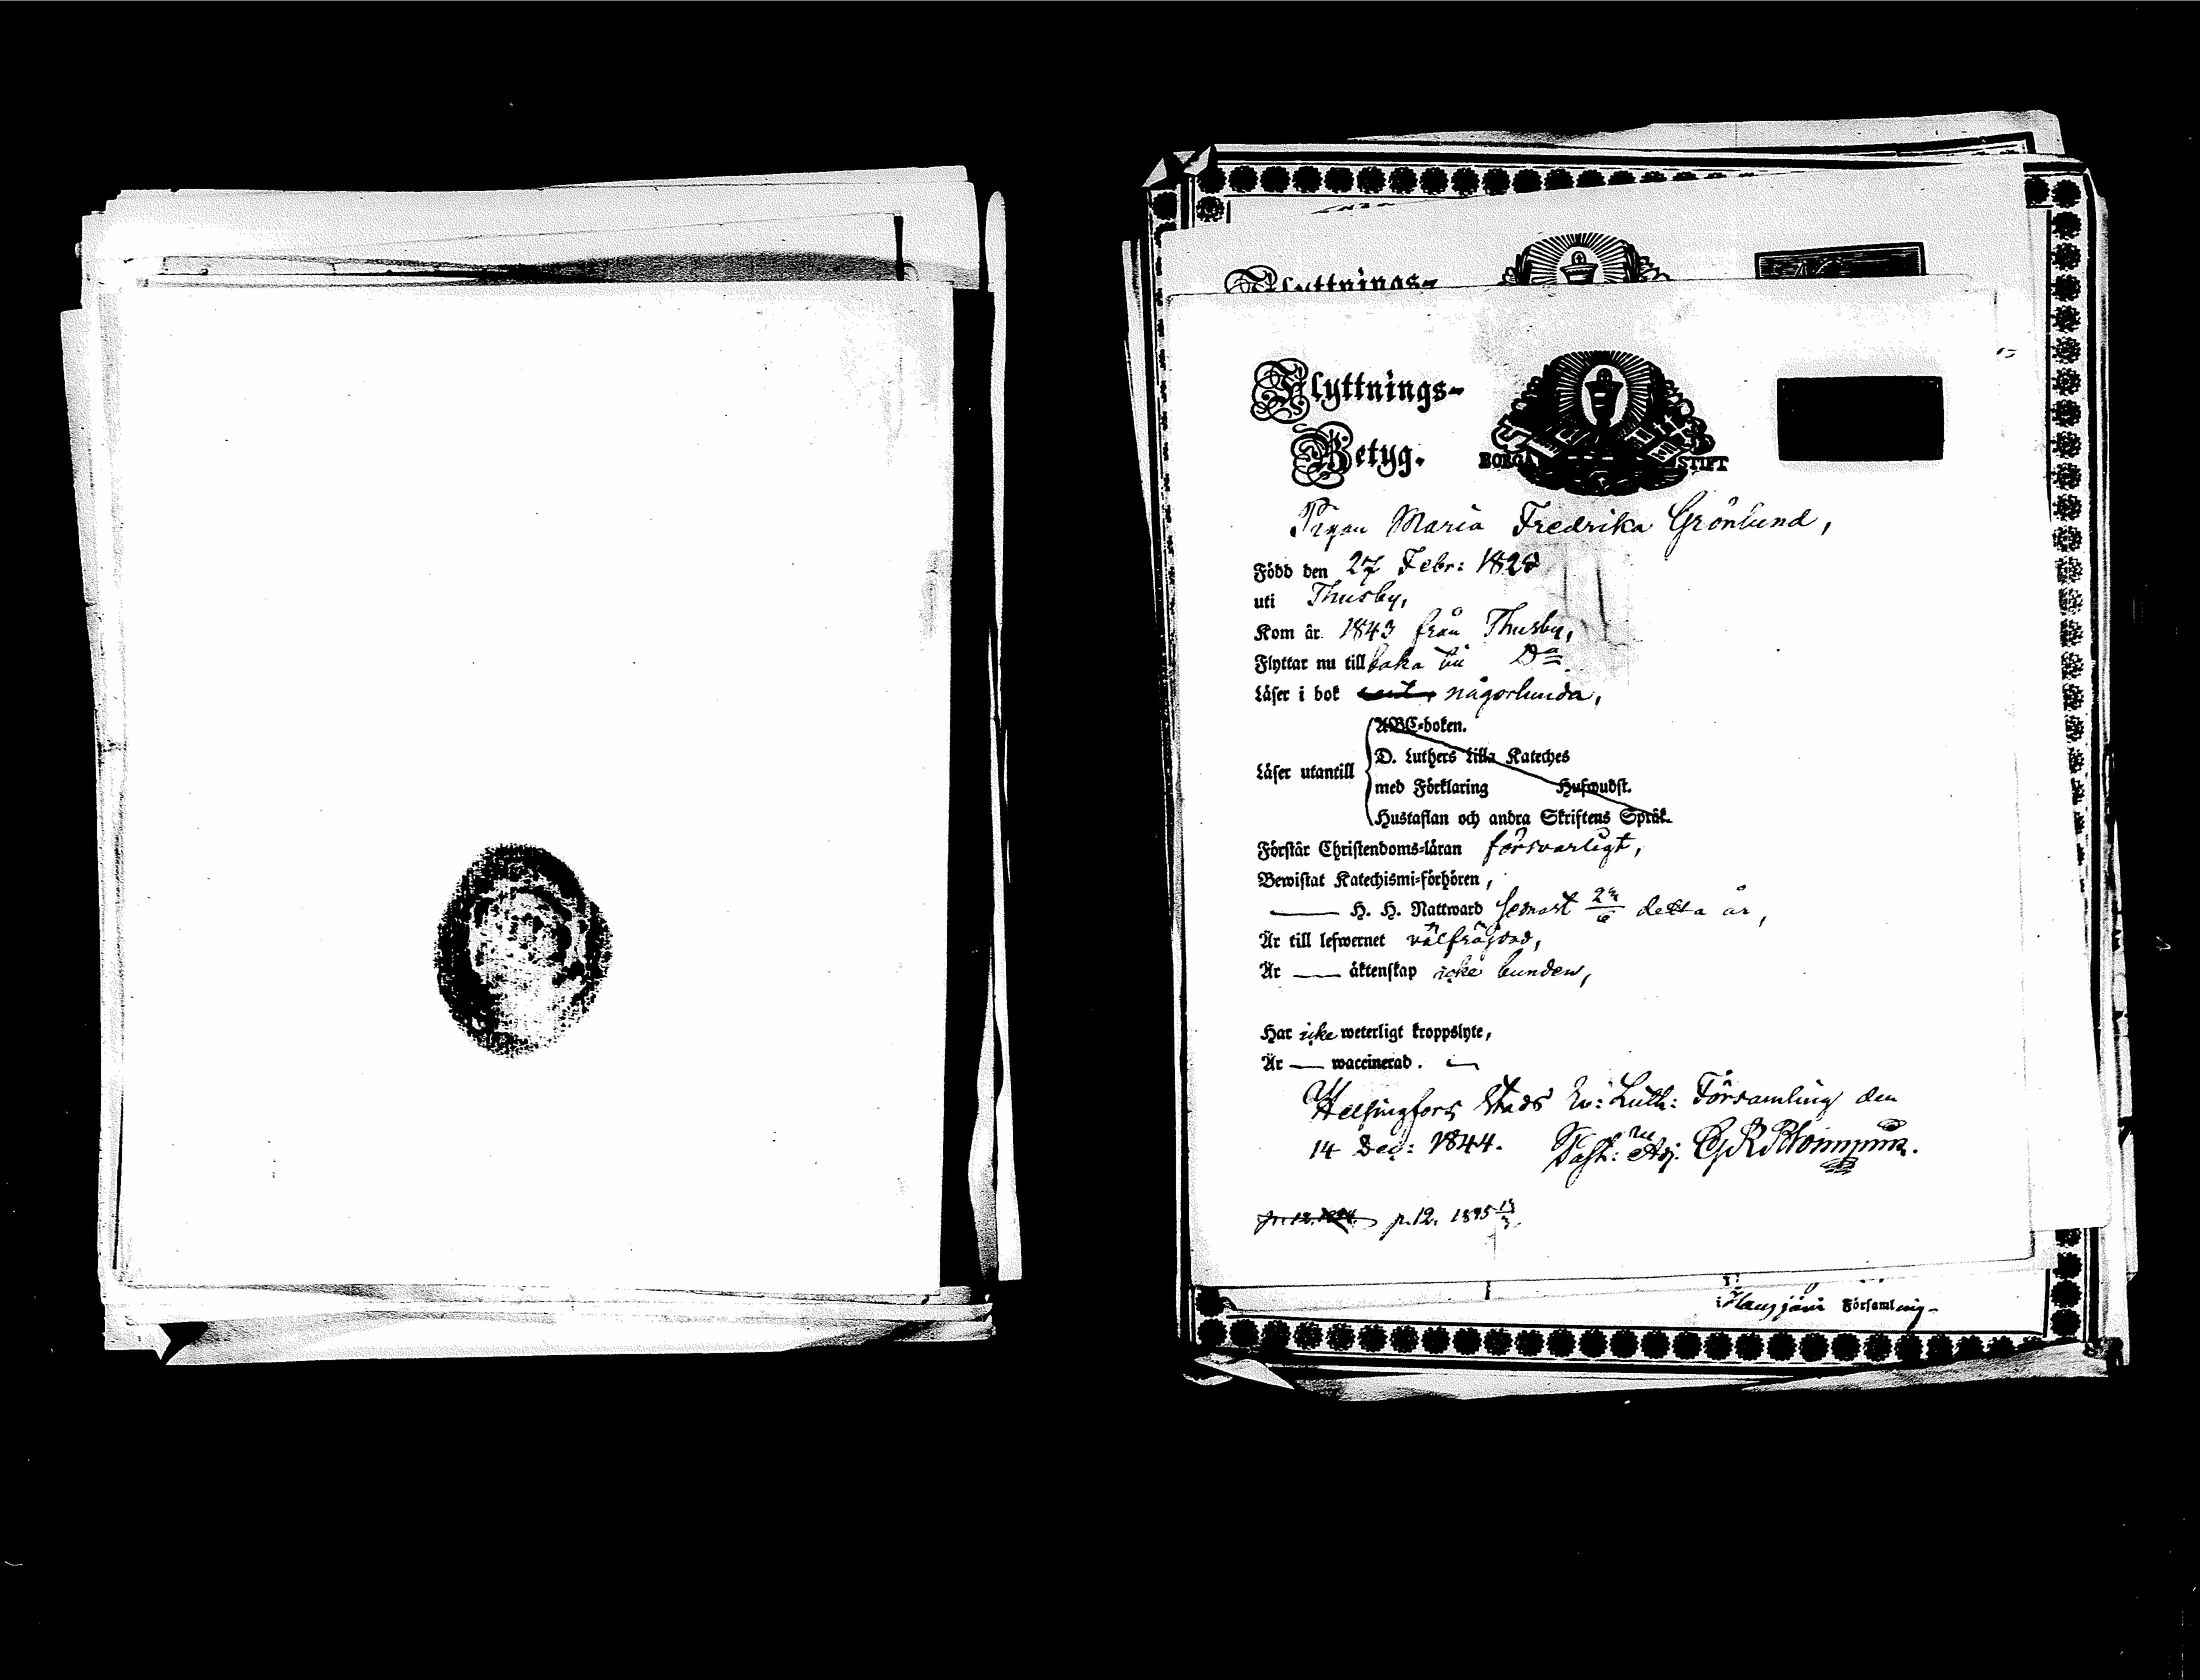 Flyttnings-
Flyttnings-
Betyg.
BORGÅ STIFT
Pigan Maria Fredrika Grönlund,
Född den 27 Febr: 1828
uti Thusby,
Kom år 1843 från Thusby,
Flyttar nu tillbaka till Do
Läser i bok någorlunda,
ABC-boken.
D. Luthers Lilla Kateches
Läser utantill
med Förklaring Hufwudst.
Hustaflan och andra Skriftens Språk.
Förstår Christendoms-läran försvarligt,
Bewistat Katechismi-förhören,
H. H. Nattward senast detta år,
Är till lefwernet välfräjdad,
Är äktenskap icke bunden,
Har icke weterligt kroppslyte,
Är waccinerad.
Helsingfors Stads Ev: Luth: Församling den
14 Dec: 1844. Past: Adj:
p. 12.
Hausjärvi Församling-